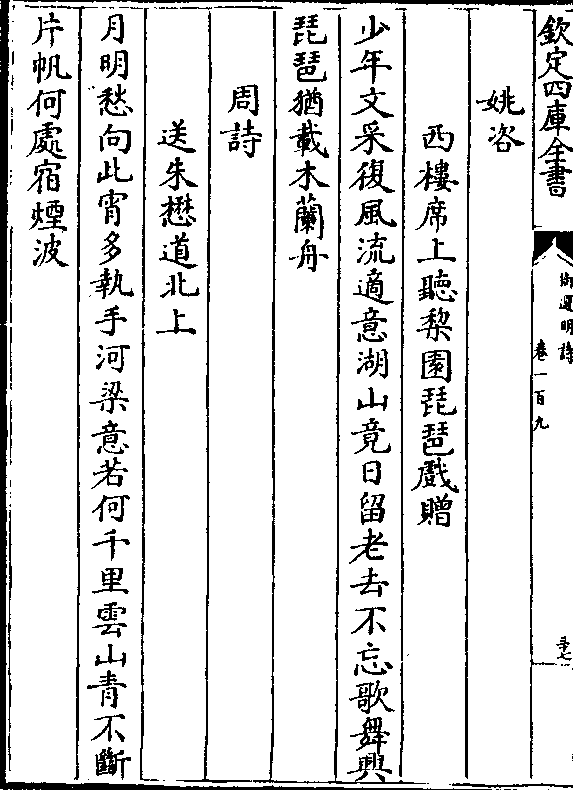 欽定四庫全書
御選明詩
卷一百九
三七
姚咨
西樓席上聽棃園琵琶戲贈
少年文采復風流適意湖山竟日留老去不忘歌舞興
琵琶猶載木蘭舟
周詩
送朱懋道北上
月明愁向此宵多執手河梁意若何千里雲山青不斷
片帆何處宿煙波